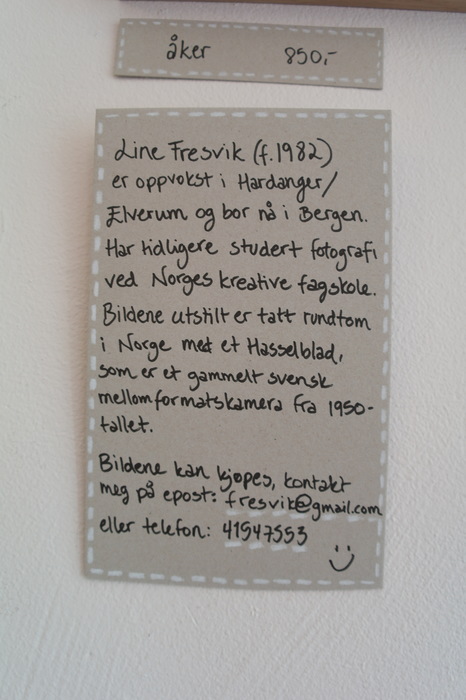 åker 850,-
Line Fresvik (f.1982)
er oppvokst i Hardanger/
Elverum og bor nå i Bergen.
Har tidligere studert fotografi
ved Norges kreative fagskole.
Bildene utstilt er tatt rundtom
i Norge med et Hasselblad,
som er et gammelt svensk
mellomformatskamera fra 1950-
tallet.
Bildene kan kjøpes, kontakt
meg på epost: fresvik@gmail.com
eller telefon: 41547553